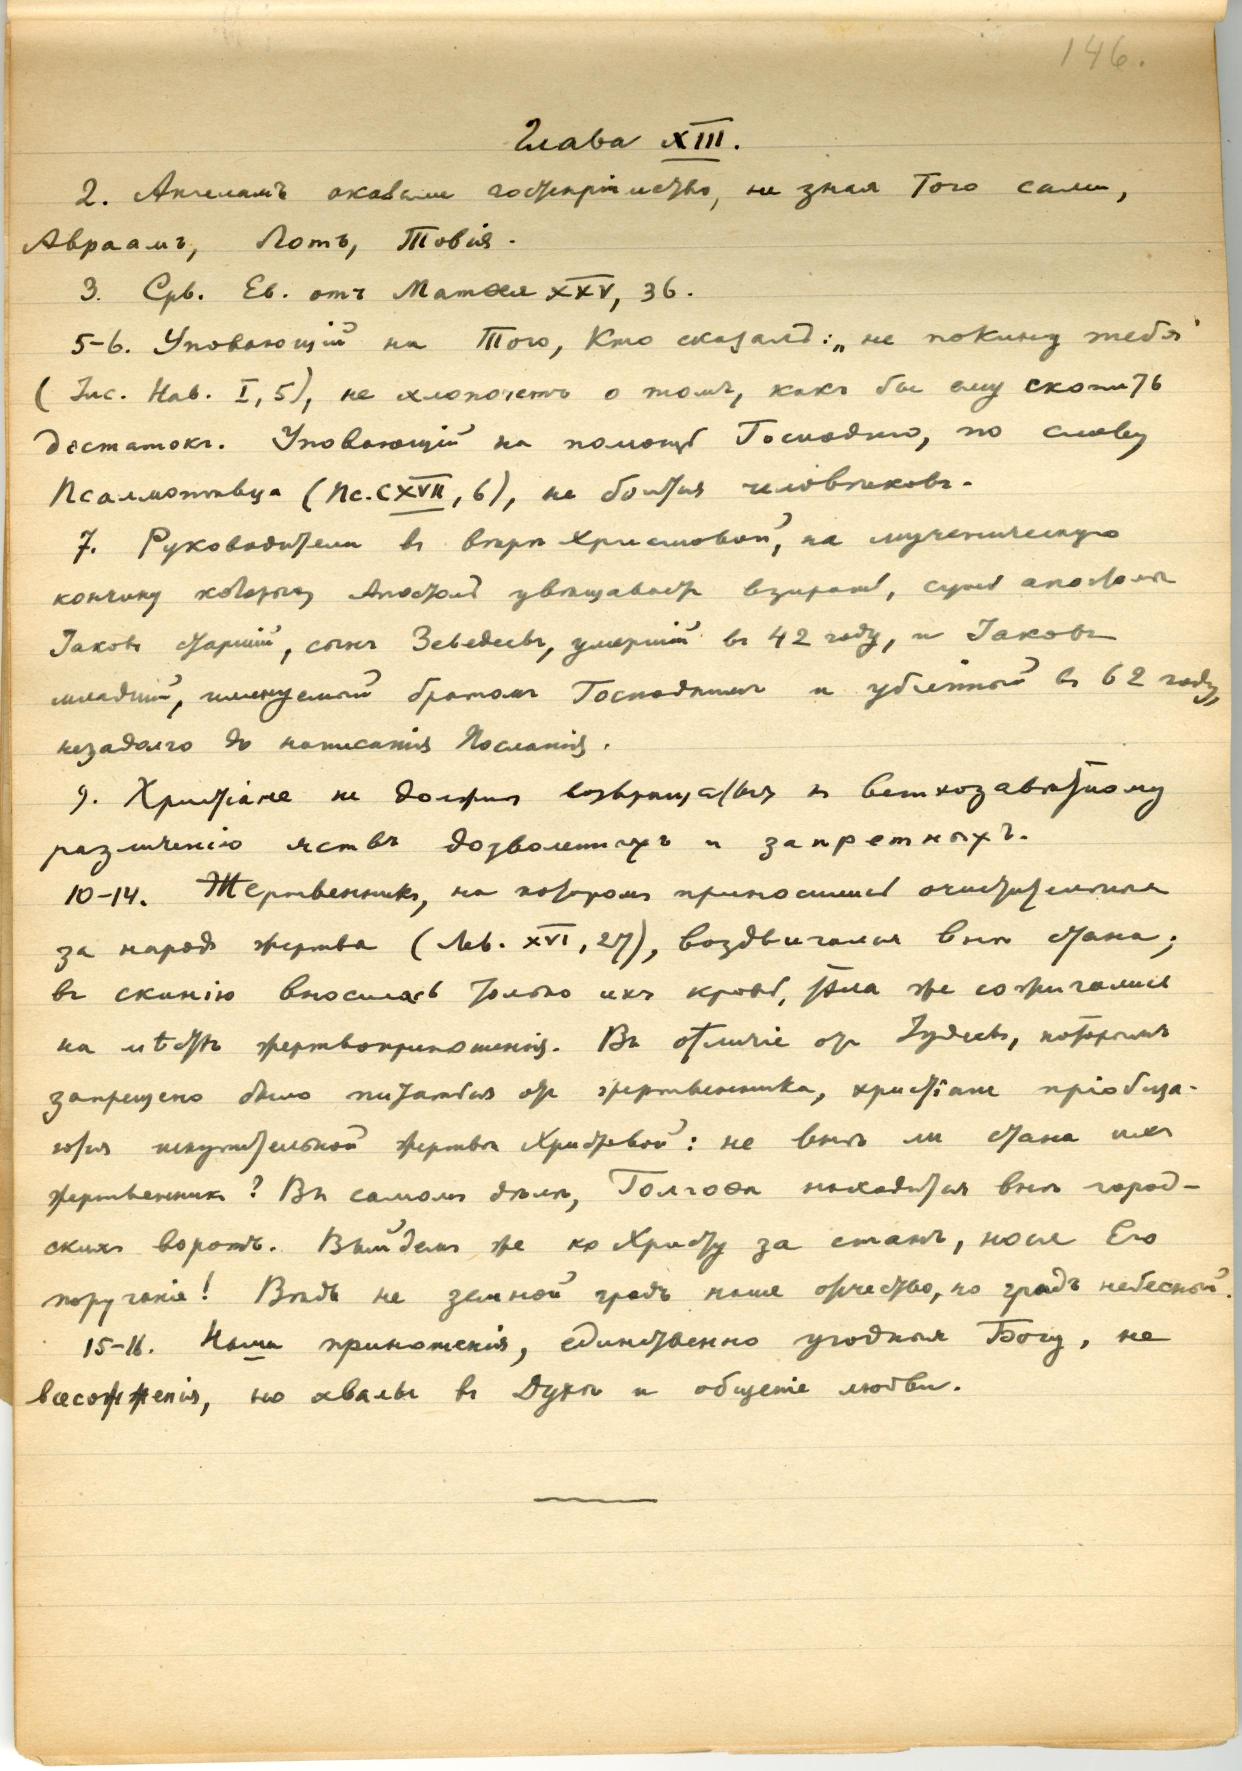 146.
Глава XIII.
2. Ангеламъ оказали гостепріимство, не зная того сами,
Авраамъ, Лотъ, Товія.
3. Срв. Ев. отъ Матѳея XXV, 36.
5-6. Уповающій на Того, Кто сказалъ: „не покину тебя"
(Іис. Нав. I, 5), не хлопочетъ о томъ, какъ бы ему скопить
достатокъ. Уповающій на помощь Господню, по слову
Псалмопѣвца (Пс. CXVII, 6), не боится человѣковъ.
7. Руководители въ вѣрѣ Христовой, на мученическую
кончину которыхъ Апостолъ увѣщаваетъ взирать, суть апостолы
Іаковъ старшій, сынъ Зеведеевъ, умершій въ 42 году, и Іаковъ
младшій, именуемый братомъ Господнимъ и убіенный въ 62 году,
незадолго до написанія Посланія.
9. Христіане не должны возвращаться къ ветхозавѣтному
различенію яствъ дозволенныхъ и запретныхъ.
10-14. Жертвенникъ, на которомъ приносились очистительныя
за народъ жертвы (Лев. XVI, 27), воздвигался внѣ стана;
въ скинію вносилась только ихъ кровь, тѣла же сожигались
на мѣстѣ жертвоприношенія. Въ отличіе отъ Іудеевъ, которымъ
запрещено было питаться отъ жертвенника, христіане пріобща-
ются искупительной жертвѣ Христовой: не внѣ ли стана ихъ
жертвенникъ? Въ самомъ дѣлѣ, Голгоѳа находится внѣ город-
скихъ воротъ. Выйдемъ же ко Христу за станъ, нося Его
поруганіе! Вѣдь не земной градъ наше отчество, но градъ небесный.
15-16. Наши приношенія, единственно угодныя Богу, не
всесожженія, но хвалы въ Духѣ и общеніе любви.